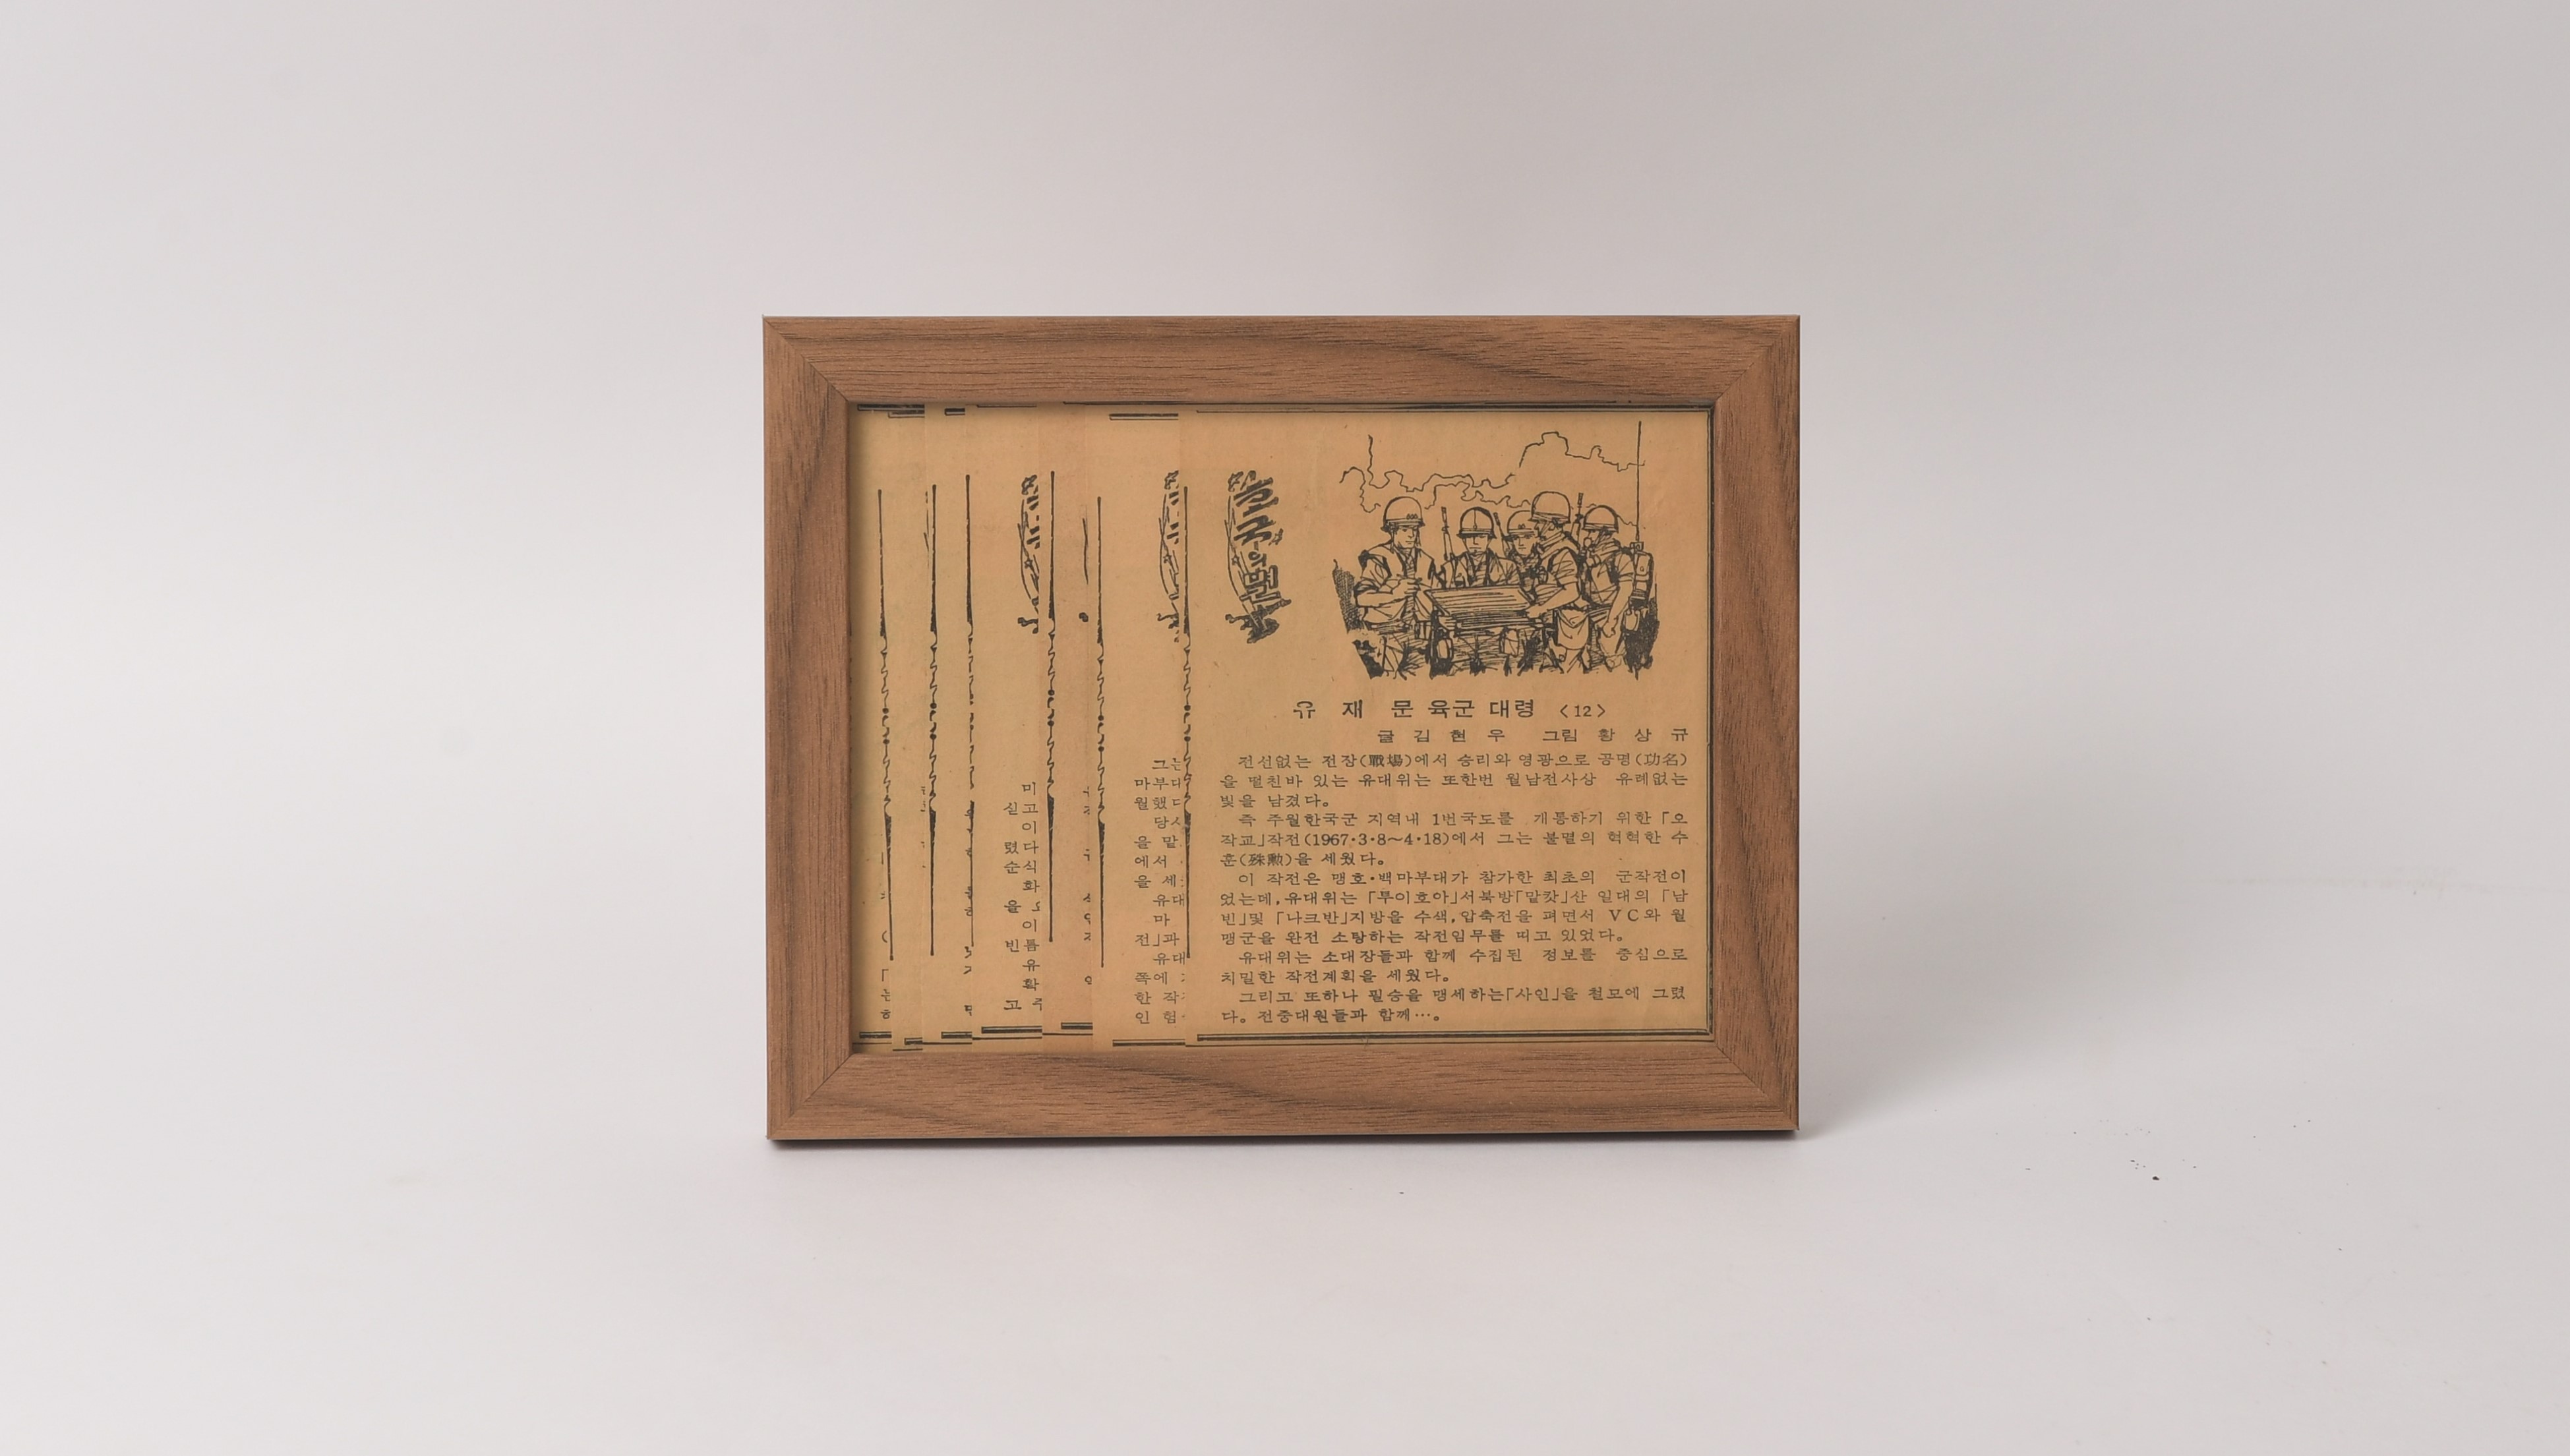 호국의 뺀
유 재 문 육군 대령 〈12〉
글 김 현 우 그림 황 상 규
전선없는 전장(戰場)에서 승리와 영광으로 공명(功名)
을 떨친바 있는 유대위는 또한번 월남전사상 유례없는
빛을 남겼다。
즉 주월한국군 지역내 1번국도를 개통하기 위한「오
작교」작전(1967·3·8~4·18)에서 그는 불멸의 혁혁한 수
훈(殊勲)을 세웠다。
이 작전은 맹호·백마부대가 참가한 최초의 군작전이
었는데,유대위는「투이호아」서북방「망캇」산 일대의「남
빈」및「나크반」지방을 수색,압축전을 펴면서 VC와 월
맹군을 완전 소탕하는 작전임무를 띠고 있었다。
유대위는 소대장들과 함께 수집된 정보를 중심으로
치밀한 작전계획을 세웠다。
그리고 또하나 필승을 맹세하는「사인」을 철모에 그렸
다。전중대원들과 함께…。
그는
마부대
월했다
을 맡
에서
을 세
유대
마
전」과
유대
쪽에
한 작
인 험
미
싣 고
이
렸 다
순 식
화
을
이
빈 틈
유
확
고